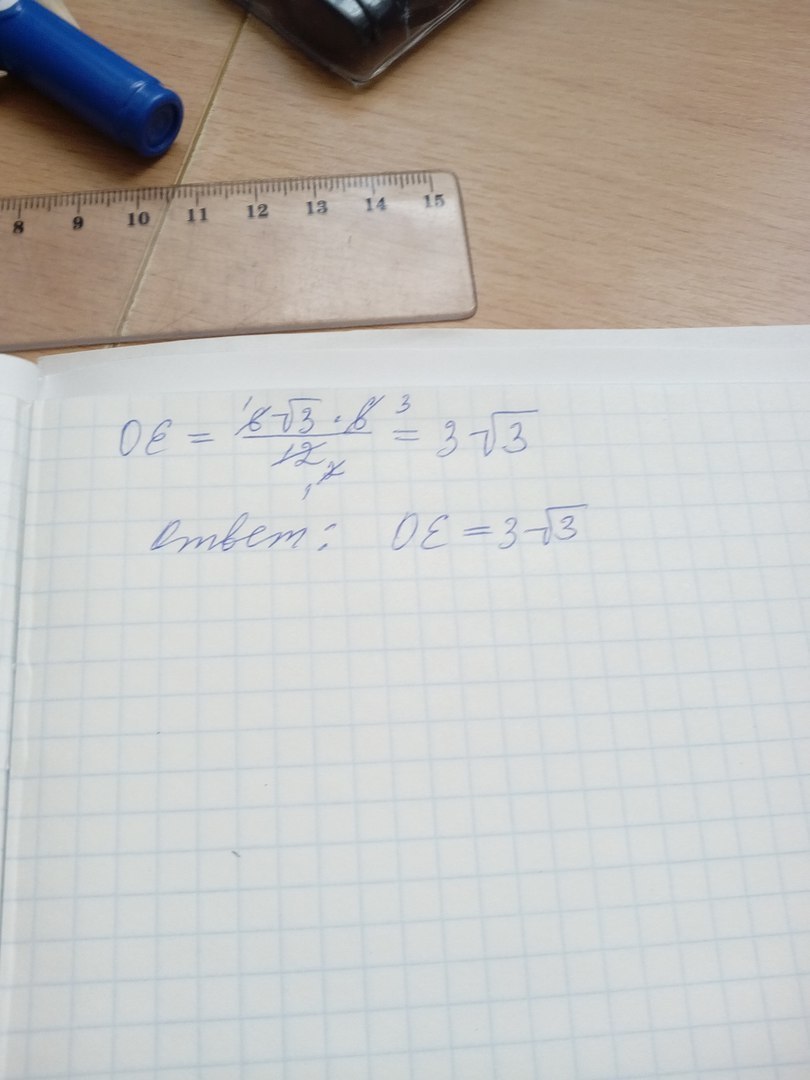 8 9 10 11 12 13 14 15
OE = 6√3 · 6 / 12 = 3√3
Ответ: OE = 3√3